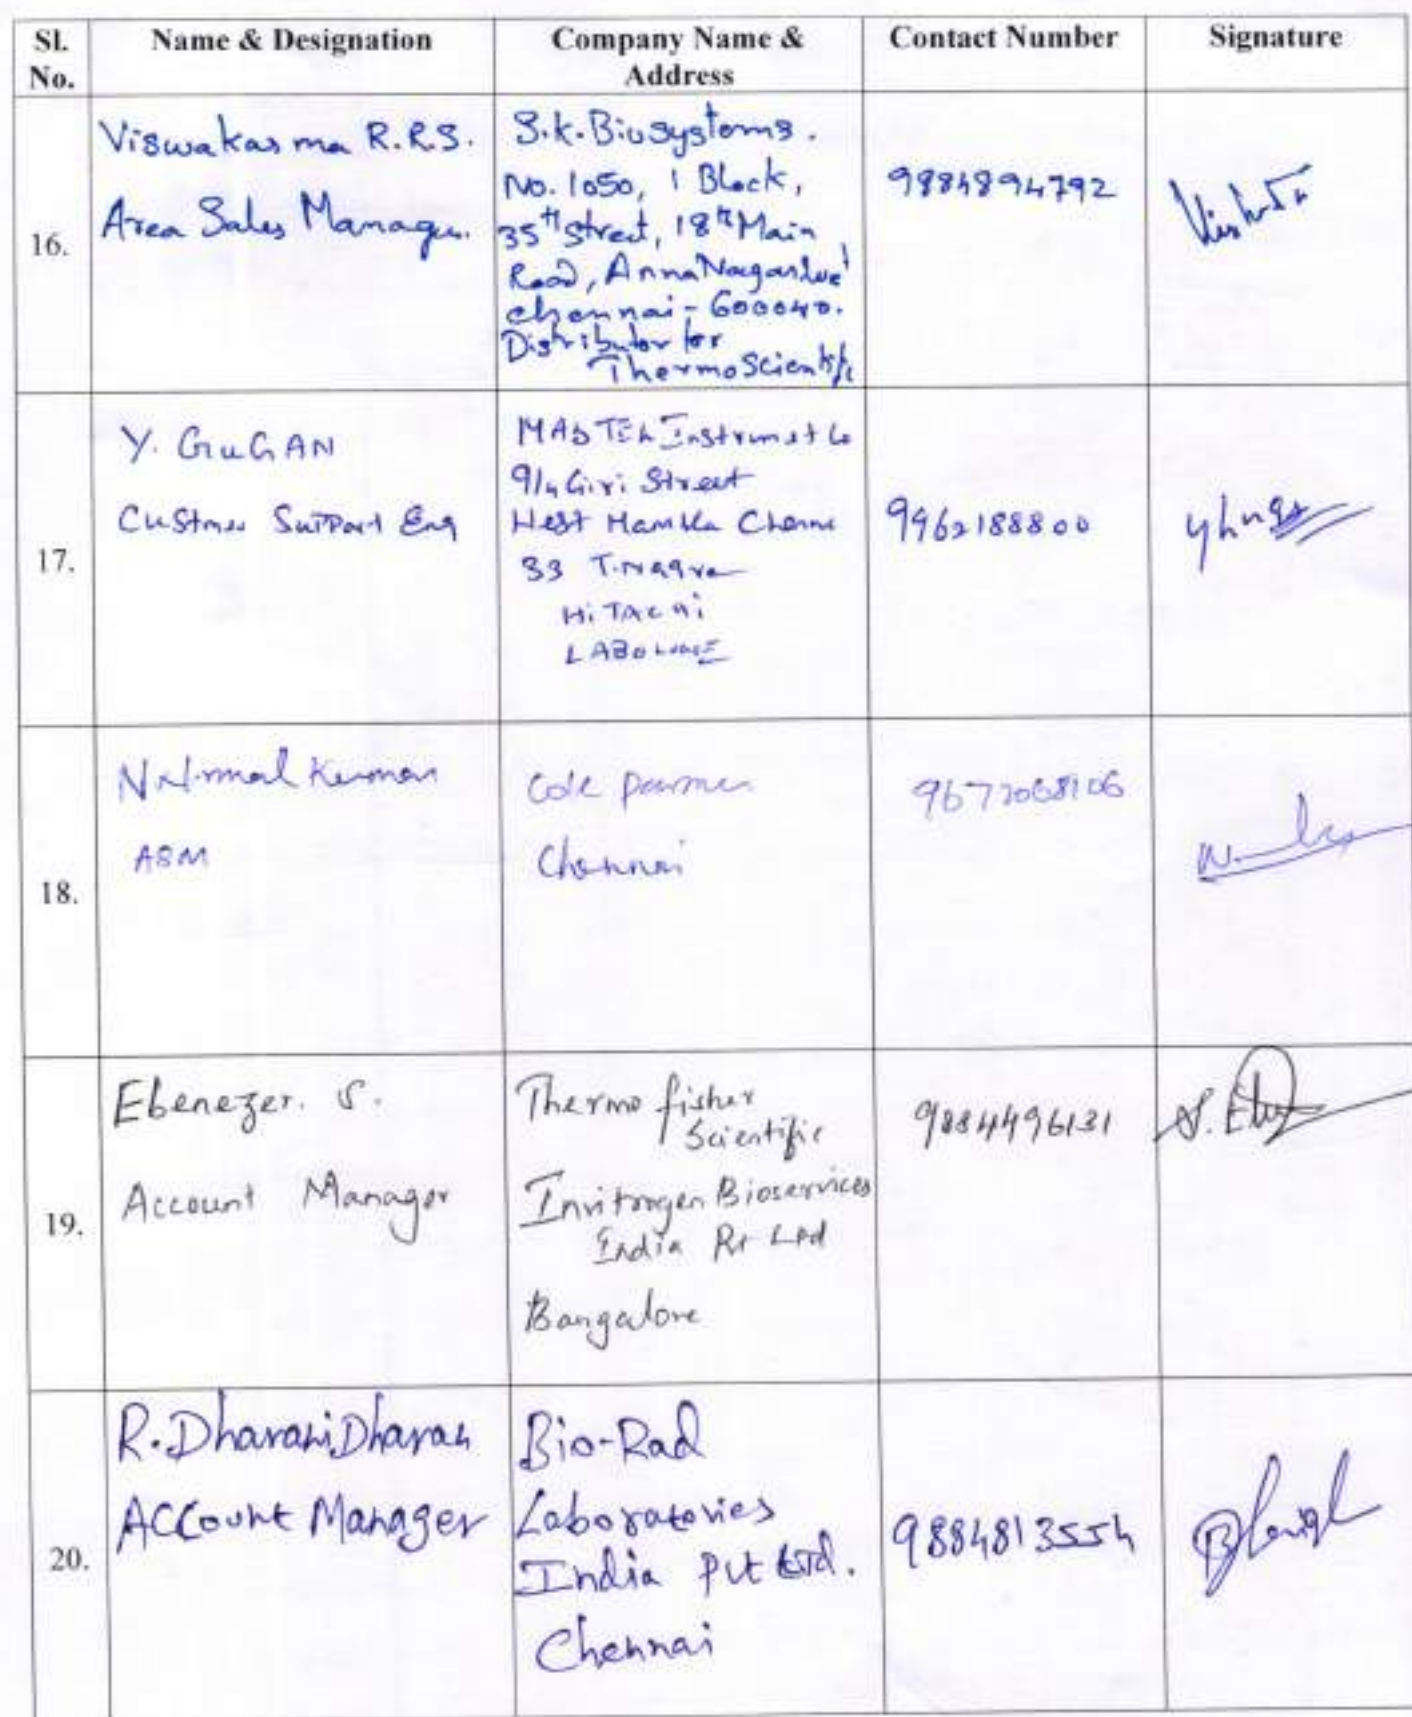 Sl. No.
Name & Designation
Company Name & Address
Contact Number
Signature
16.
Viswakarma R.R.S.
Area Sales Manager.
S.K.Biosystems.
No. 1050, I Block,
35th Street, 18th Main
Road, Anna Nagar
Chennai - 600040.
Distributor for
Thermo Scientific
9884894792
17.
Y. GUGAN
Eng
Instrumet Co
Giri Street
West
33
9962188800
18.
Kumar
ASM
Cole parmer
Chennai
19.
Ebenezer. S.
Account Manager
Thermo fisher
Scientific
Invitrogen Bioservices
India Pvt Ltd
Bangalore
9884496131
S.
20.
R.DharaniDharan
ACCount Manager
Bio-Rad
Laboratories
India Pvt Ltd.
Chennai
9884813554